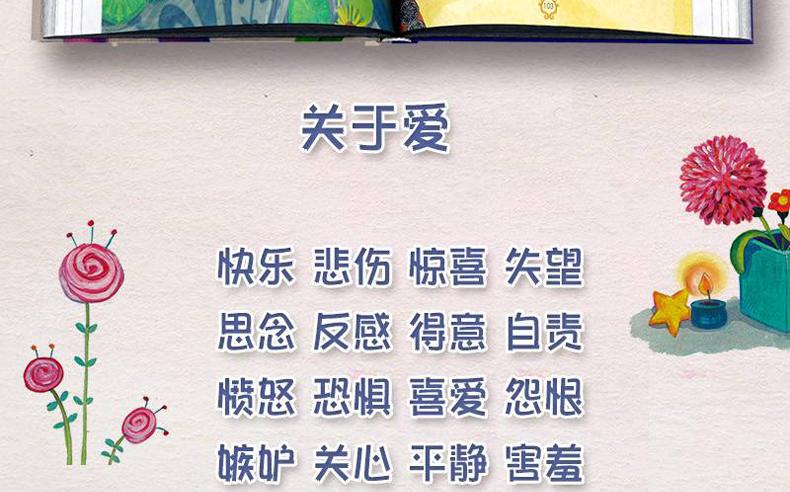 103
关于爱
快乐 悲伤 惊喜 失望
思念 反感 得意 自责
愤怒 恐惧 喜爱 怨恨
嫉妒 关心 平静 害羞